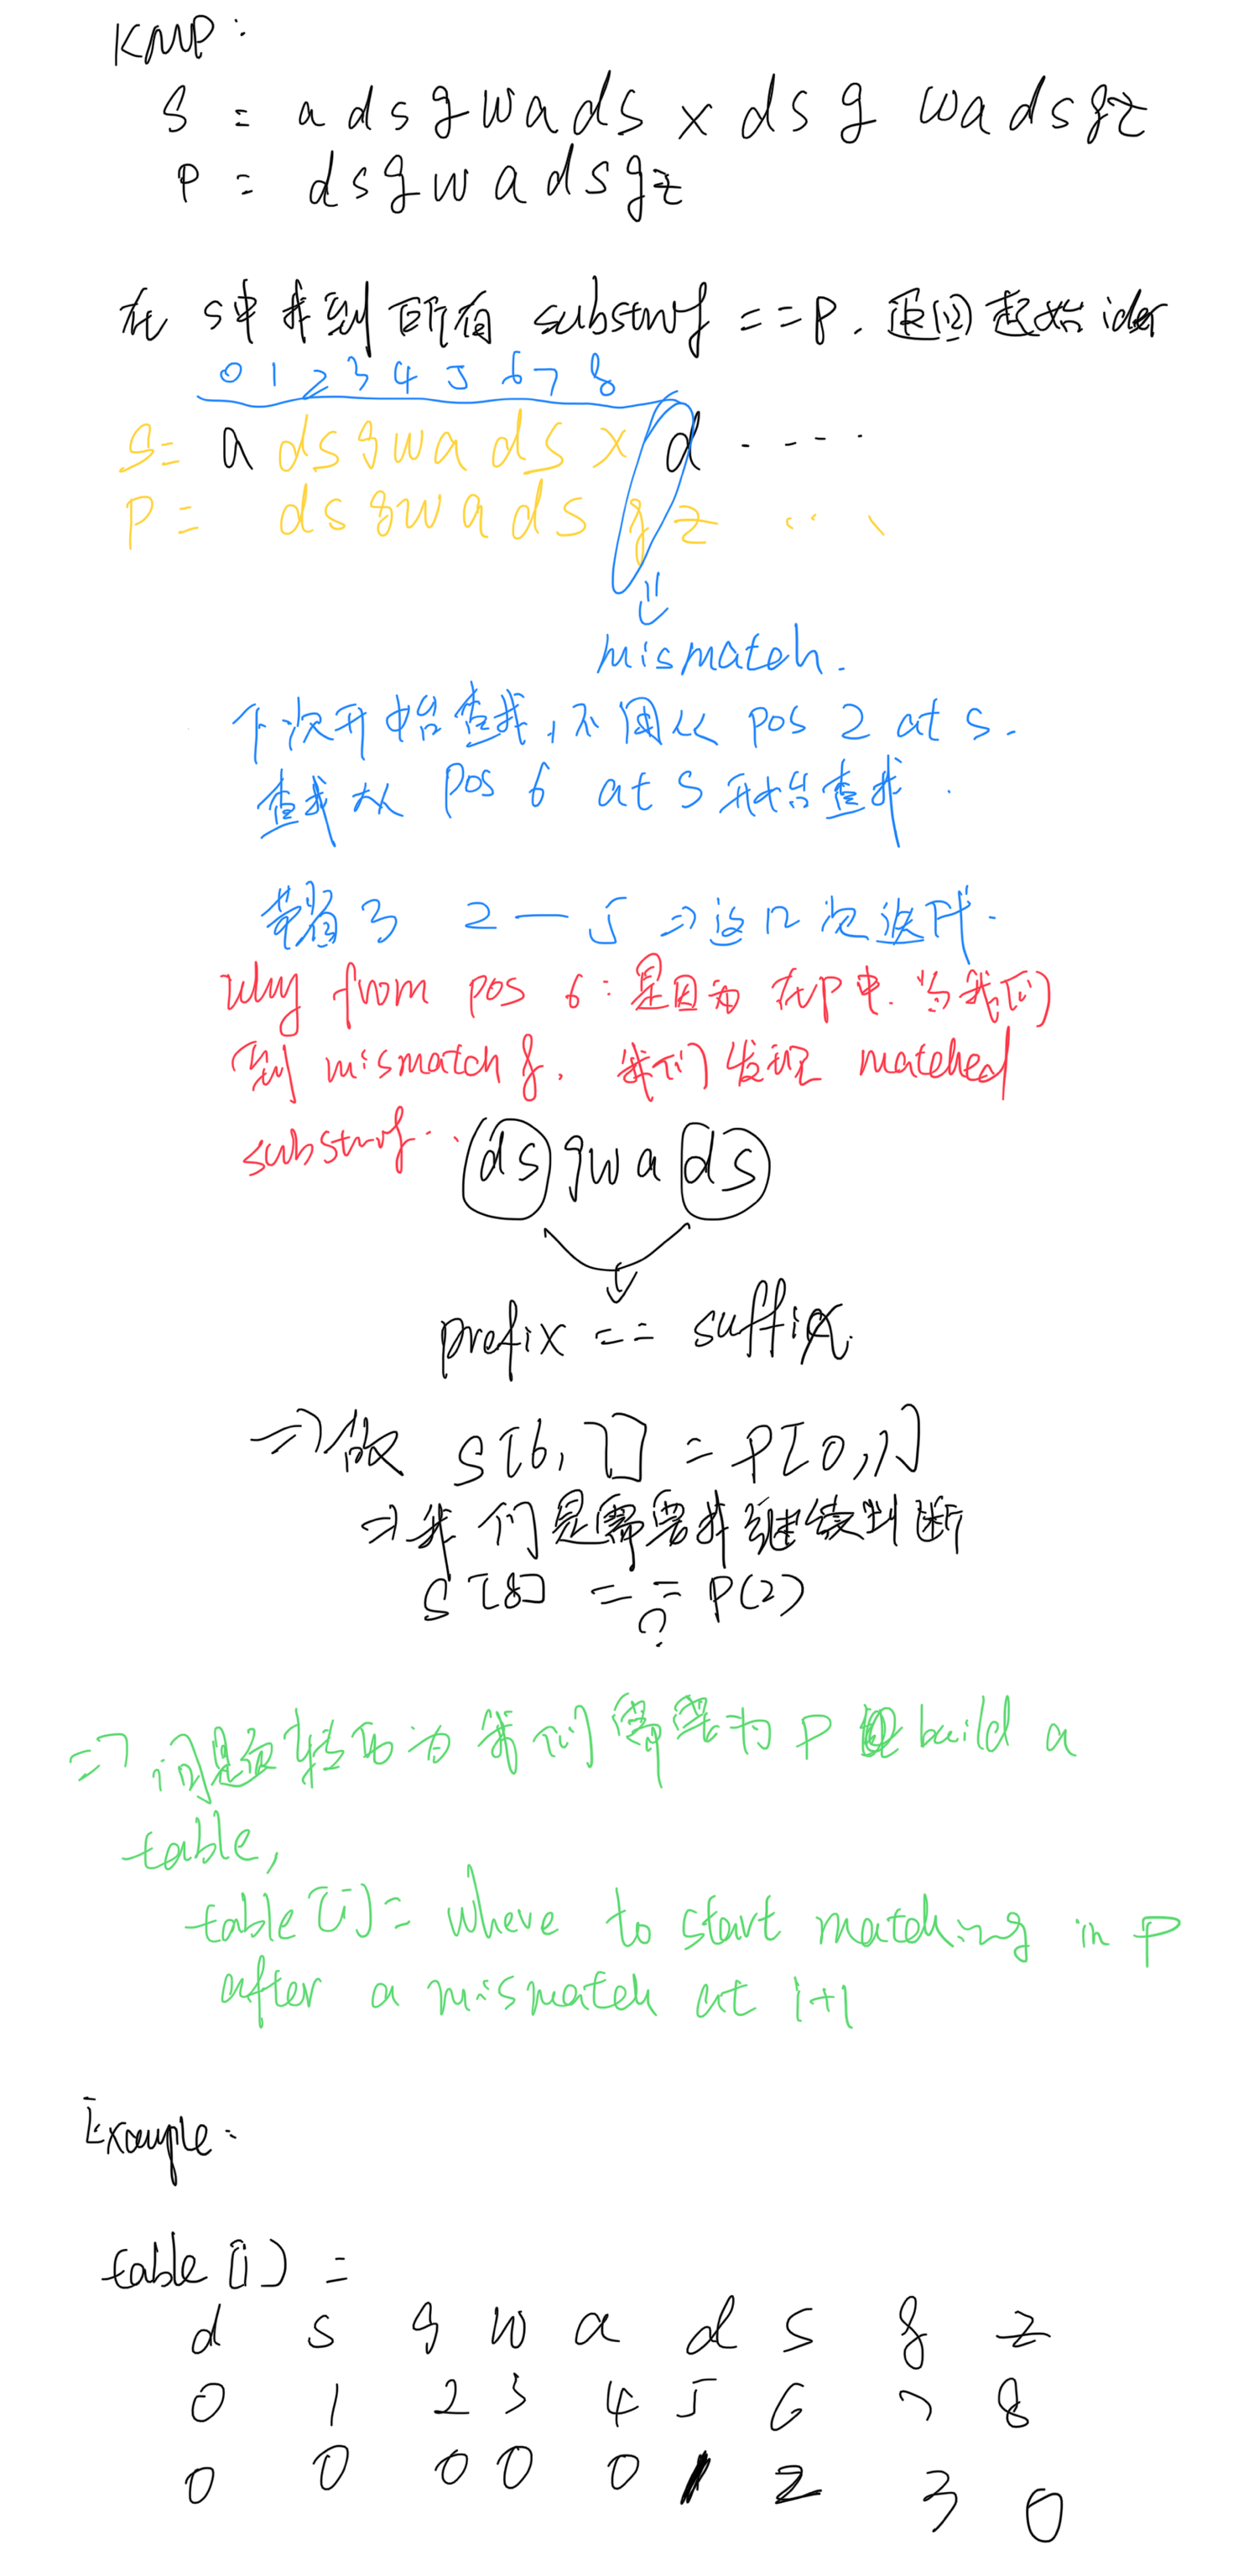 KMP:
S = a d s g w a d s x d s g w a d s g z
P = d s g w a d s g z
在 S中 找到 所有 substring == P. 返回 起始 idex
0 1 2 3 4 5 6 7 8
S= a d s g w a d s x d ----
P= d s g w a d s g z ...
mismatch.
下次开始查找,不用从 pos 2 at S.
查找 从 pos 6 at S 开始查找.
节省了 2 — 5 => 这几次迭代.
why from pos 6: 是因为 在P中. 当我们
到 mismatch g, 我们发现 matched
substring..
ds gwa ds
prefix == suffix.
=> 故 S[6,7] = P[0,1]
=> 我们是需要找继续判断
S[8] == P(2)
?
=> 问题转换为我们需要为 P build a
table,
table[i] = where to start matching in P
after a mismatch at i+1
Example:
table[i] =
d s g w a d s g z
0 1 2 3 4 5 6 7 8
0 0 0 0 0 1 2 3 0